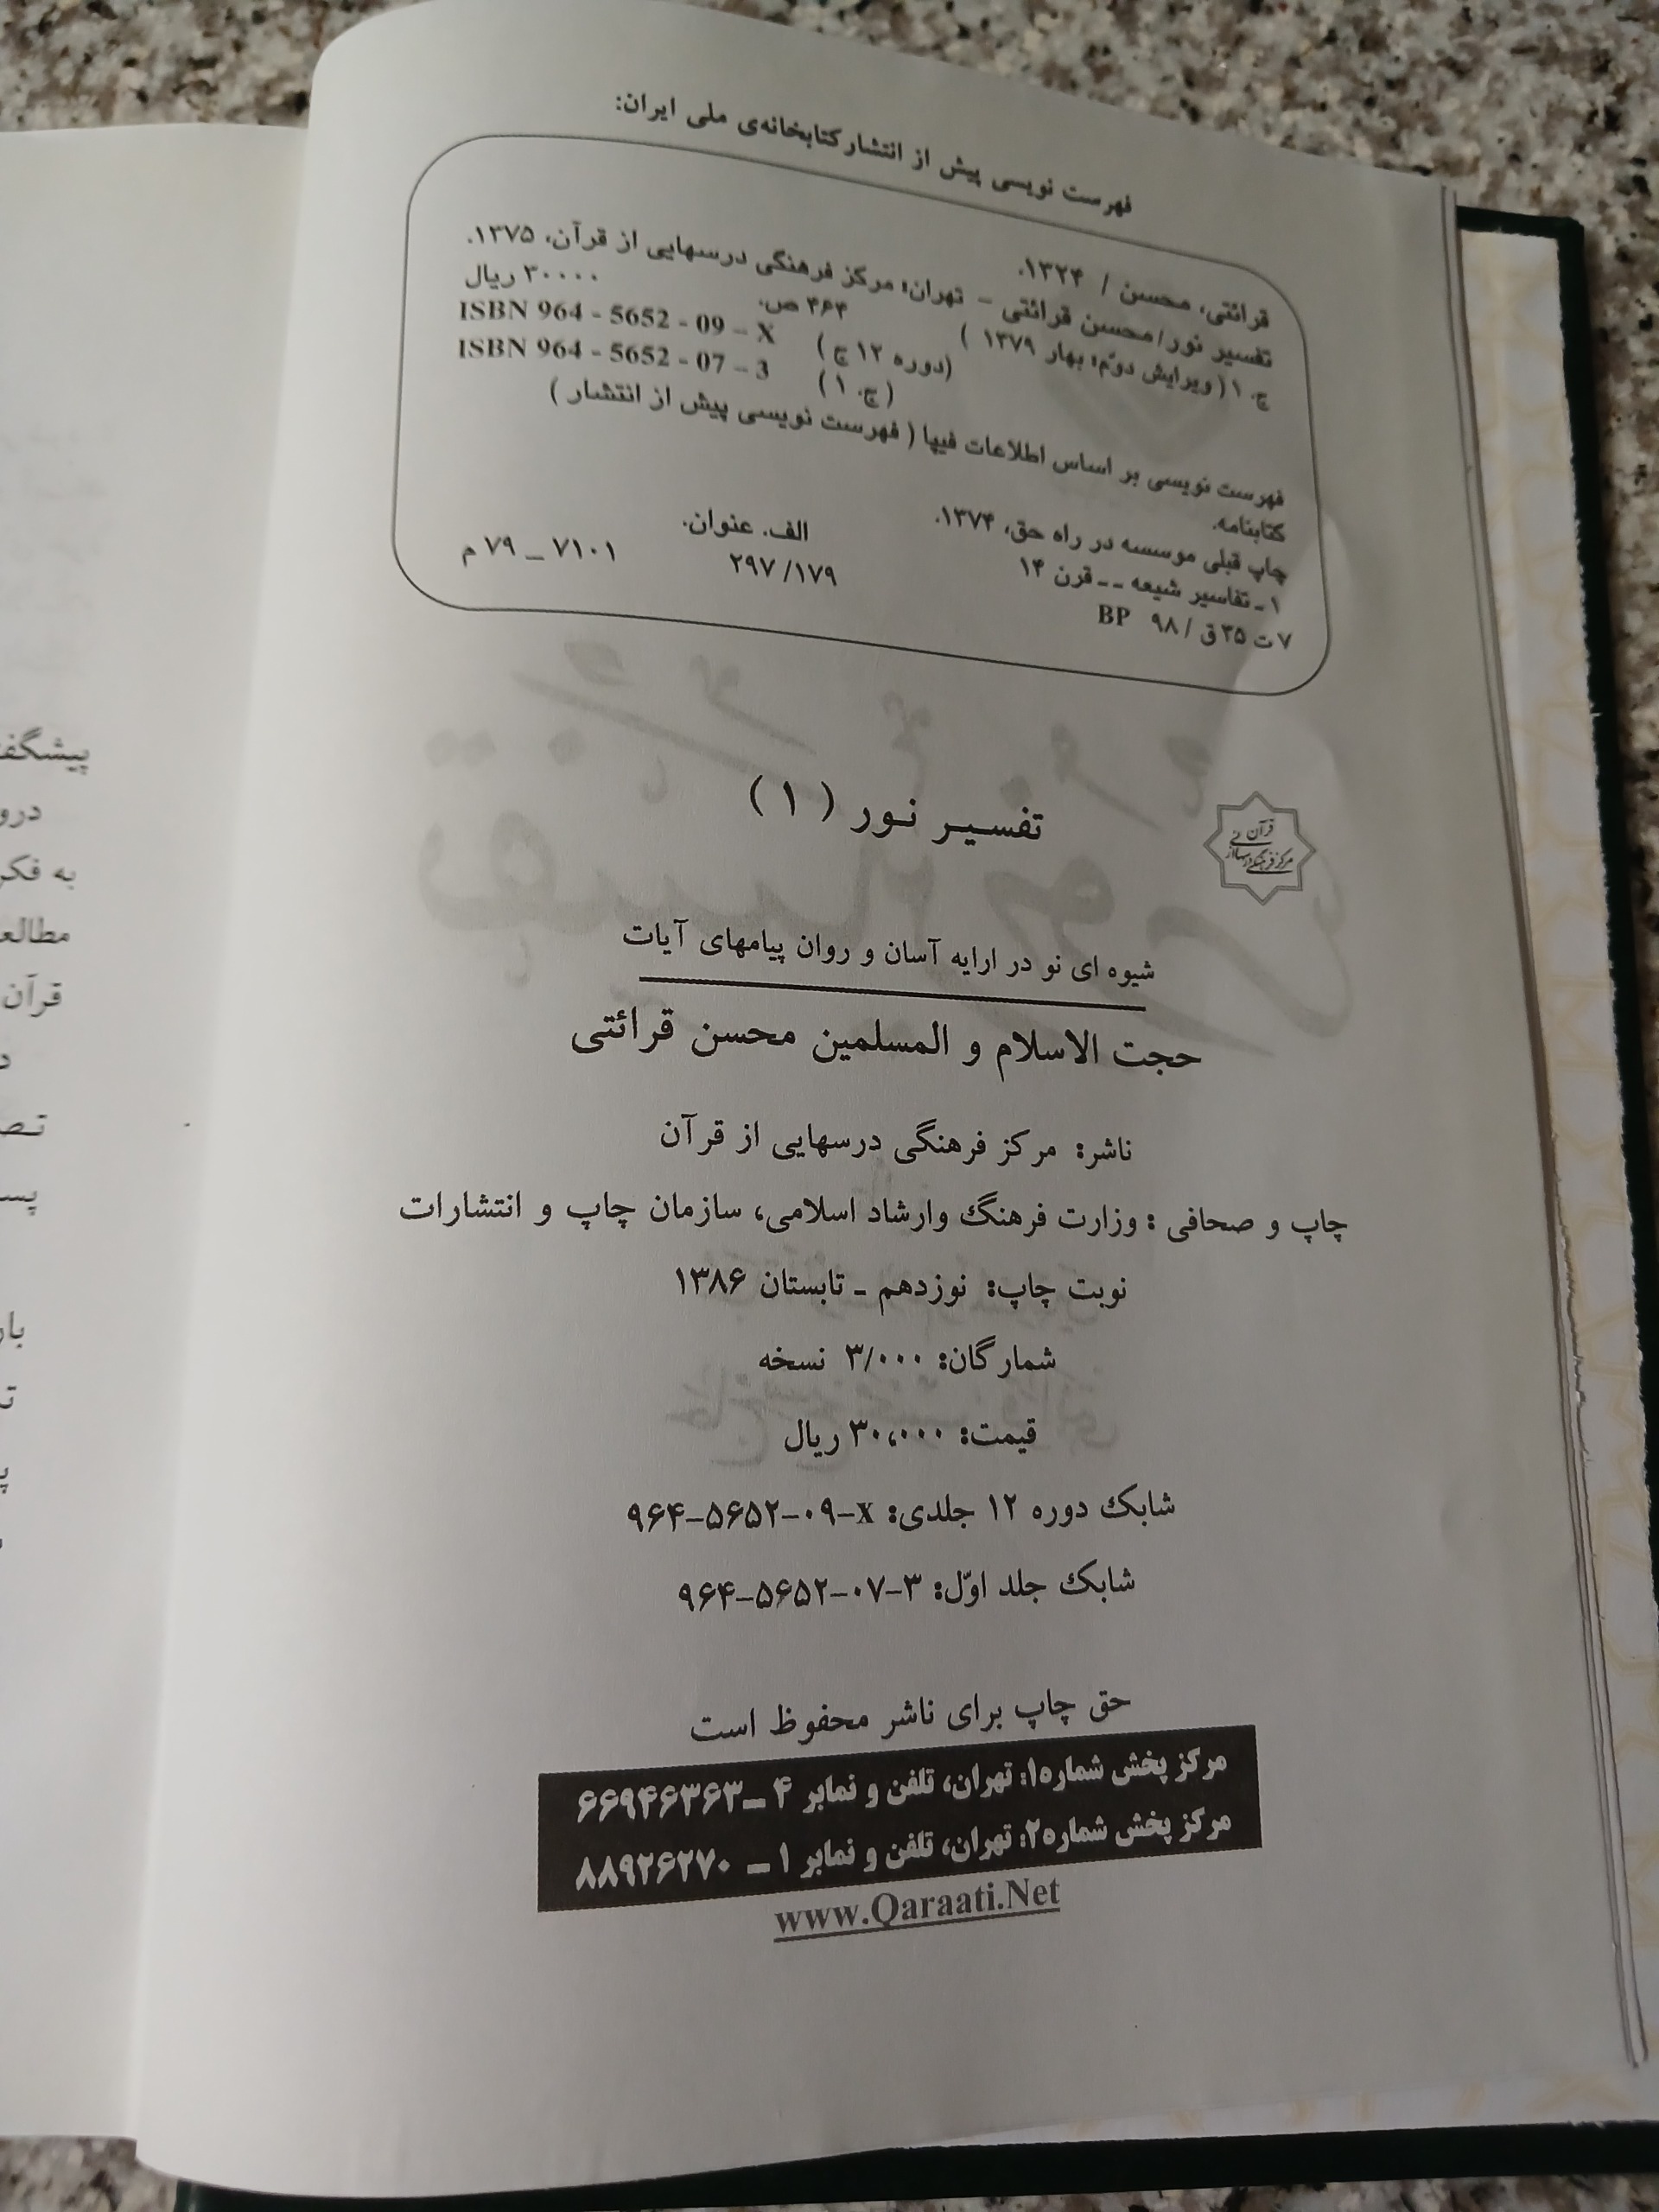 فهرست نویسی پیش از انتشار کتابخانه‌ی ملی ایران:
قرائتی، محسن / ۱۳۲۴.
تفسیر نور/محسن قرائتی – تهران: مرکز فرهنگی درسهایی از قرآن، ۱۳۷۵.
ج. ۱ ( ویرایش دوّم: بهار ۱۳۷۹ ) ۴۶۴ ص. ۳۰۰۰۰ ریال
(دوره ۱۲ ج ) ISBN 964 - 5652 - 09 – X
(ج. ۱ ) ISBN 964 - 5652 - 07 – 3
فهرست نویسی بر اساس اطلاعات فیپا ( فهرست نویسی پیش از انتشار )
کتابنامه.
چاپ قبلی موسسه در راه حق، ۱۳۷۴.
۱ ـ تفاسیر شیعه ـ ـ قرن ۱۴ الف. عنوان.
۷ ت ۳۵ ق / ۹۸ BP ۲۹۷/۱۷۹ ۷۱۰۱ – ۷۹ م
تفسیر نور ( ۱ )
قرآن
مرکز فرهنگی درسهایی از
شیوه ای نو در ارایه آسان و روان پیامهای آیات
حجت الاسلام و المسلمین محسن قرائتی
ناشر: مرکز فرهنگی درسهایی از قرآن
چاپ و صحافی : وزارت فرهنگ وارشاد اسلامی، سازمان چاپ و انتشارات
نوبت چاپ: نوزدهم ـ تابستان ۱۳۸۶
شمارگان: ۳/۰۰۰ نسخه
قیمت: ۳۰،۰۰۰ ریال
شابک دوره ۱۲ جلدی: ۹۶۴-۵۶۵۲-۰۹-x
شابک جلد اوّل: ۹۶۴-۵۶۵۲-۰۷-۳
حق چاپ برای ناشر محفوظ است
مرکز پخش شماره۱: تهران، تلفن و نمابر ۴ ـ۶۶۹۴۶۳۶۳
مرکز پخش شماره۲: تهران، تلفن و نمابر ۱ ـ ۸۸۹۲۶۲۷۰
www.Qaraati.Net
به فکر
قرآن